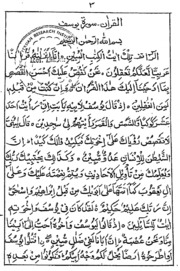 ٣
القرآن سورة يوسف
بسم الله الرحمن الرحيم
الر تلك آيت الكتب المبين إنا أنزلنه قرءنا
عربيا لعلكم تعقلون نحن نقص عليك أحسن القصص
بما أوحينا إليك هذا القرآن وإن كنت من قبله
لمن الغفلين إذ قال يوسف لأبيه يأبت إني رأيت أحد
عشر كوكبا والشمس والقمر رأيتهم لي سجدين قال يبني
لا تقصص رءياك على إخوتك فيكيدوا لك كيدا إن
الشيطن للإنسان عدو مبين وكذلك يجتبيك ربك
ويعلمك من تأويل الأحاديث ويتم نعمته عليك وعلى
آل يعقوب كما أتمها على أبويك من قبل إبرهيم وإسحق
إن ربك عليم حكيم لقد كان في يوسف وإخوته
آيت للسائلين إذ قالوا ليوسف وأخوه أحب إلى أبينا
منا ونحن عصبة إن أبانا لفي ضلل مبين اقتلوا يوسف
أو اطرحوه أرضا يخل لكم وجه أبيكم وتكونوا من بعده